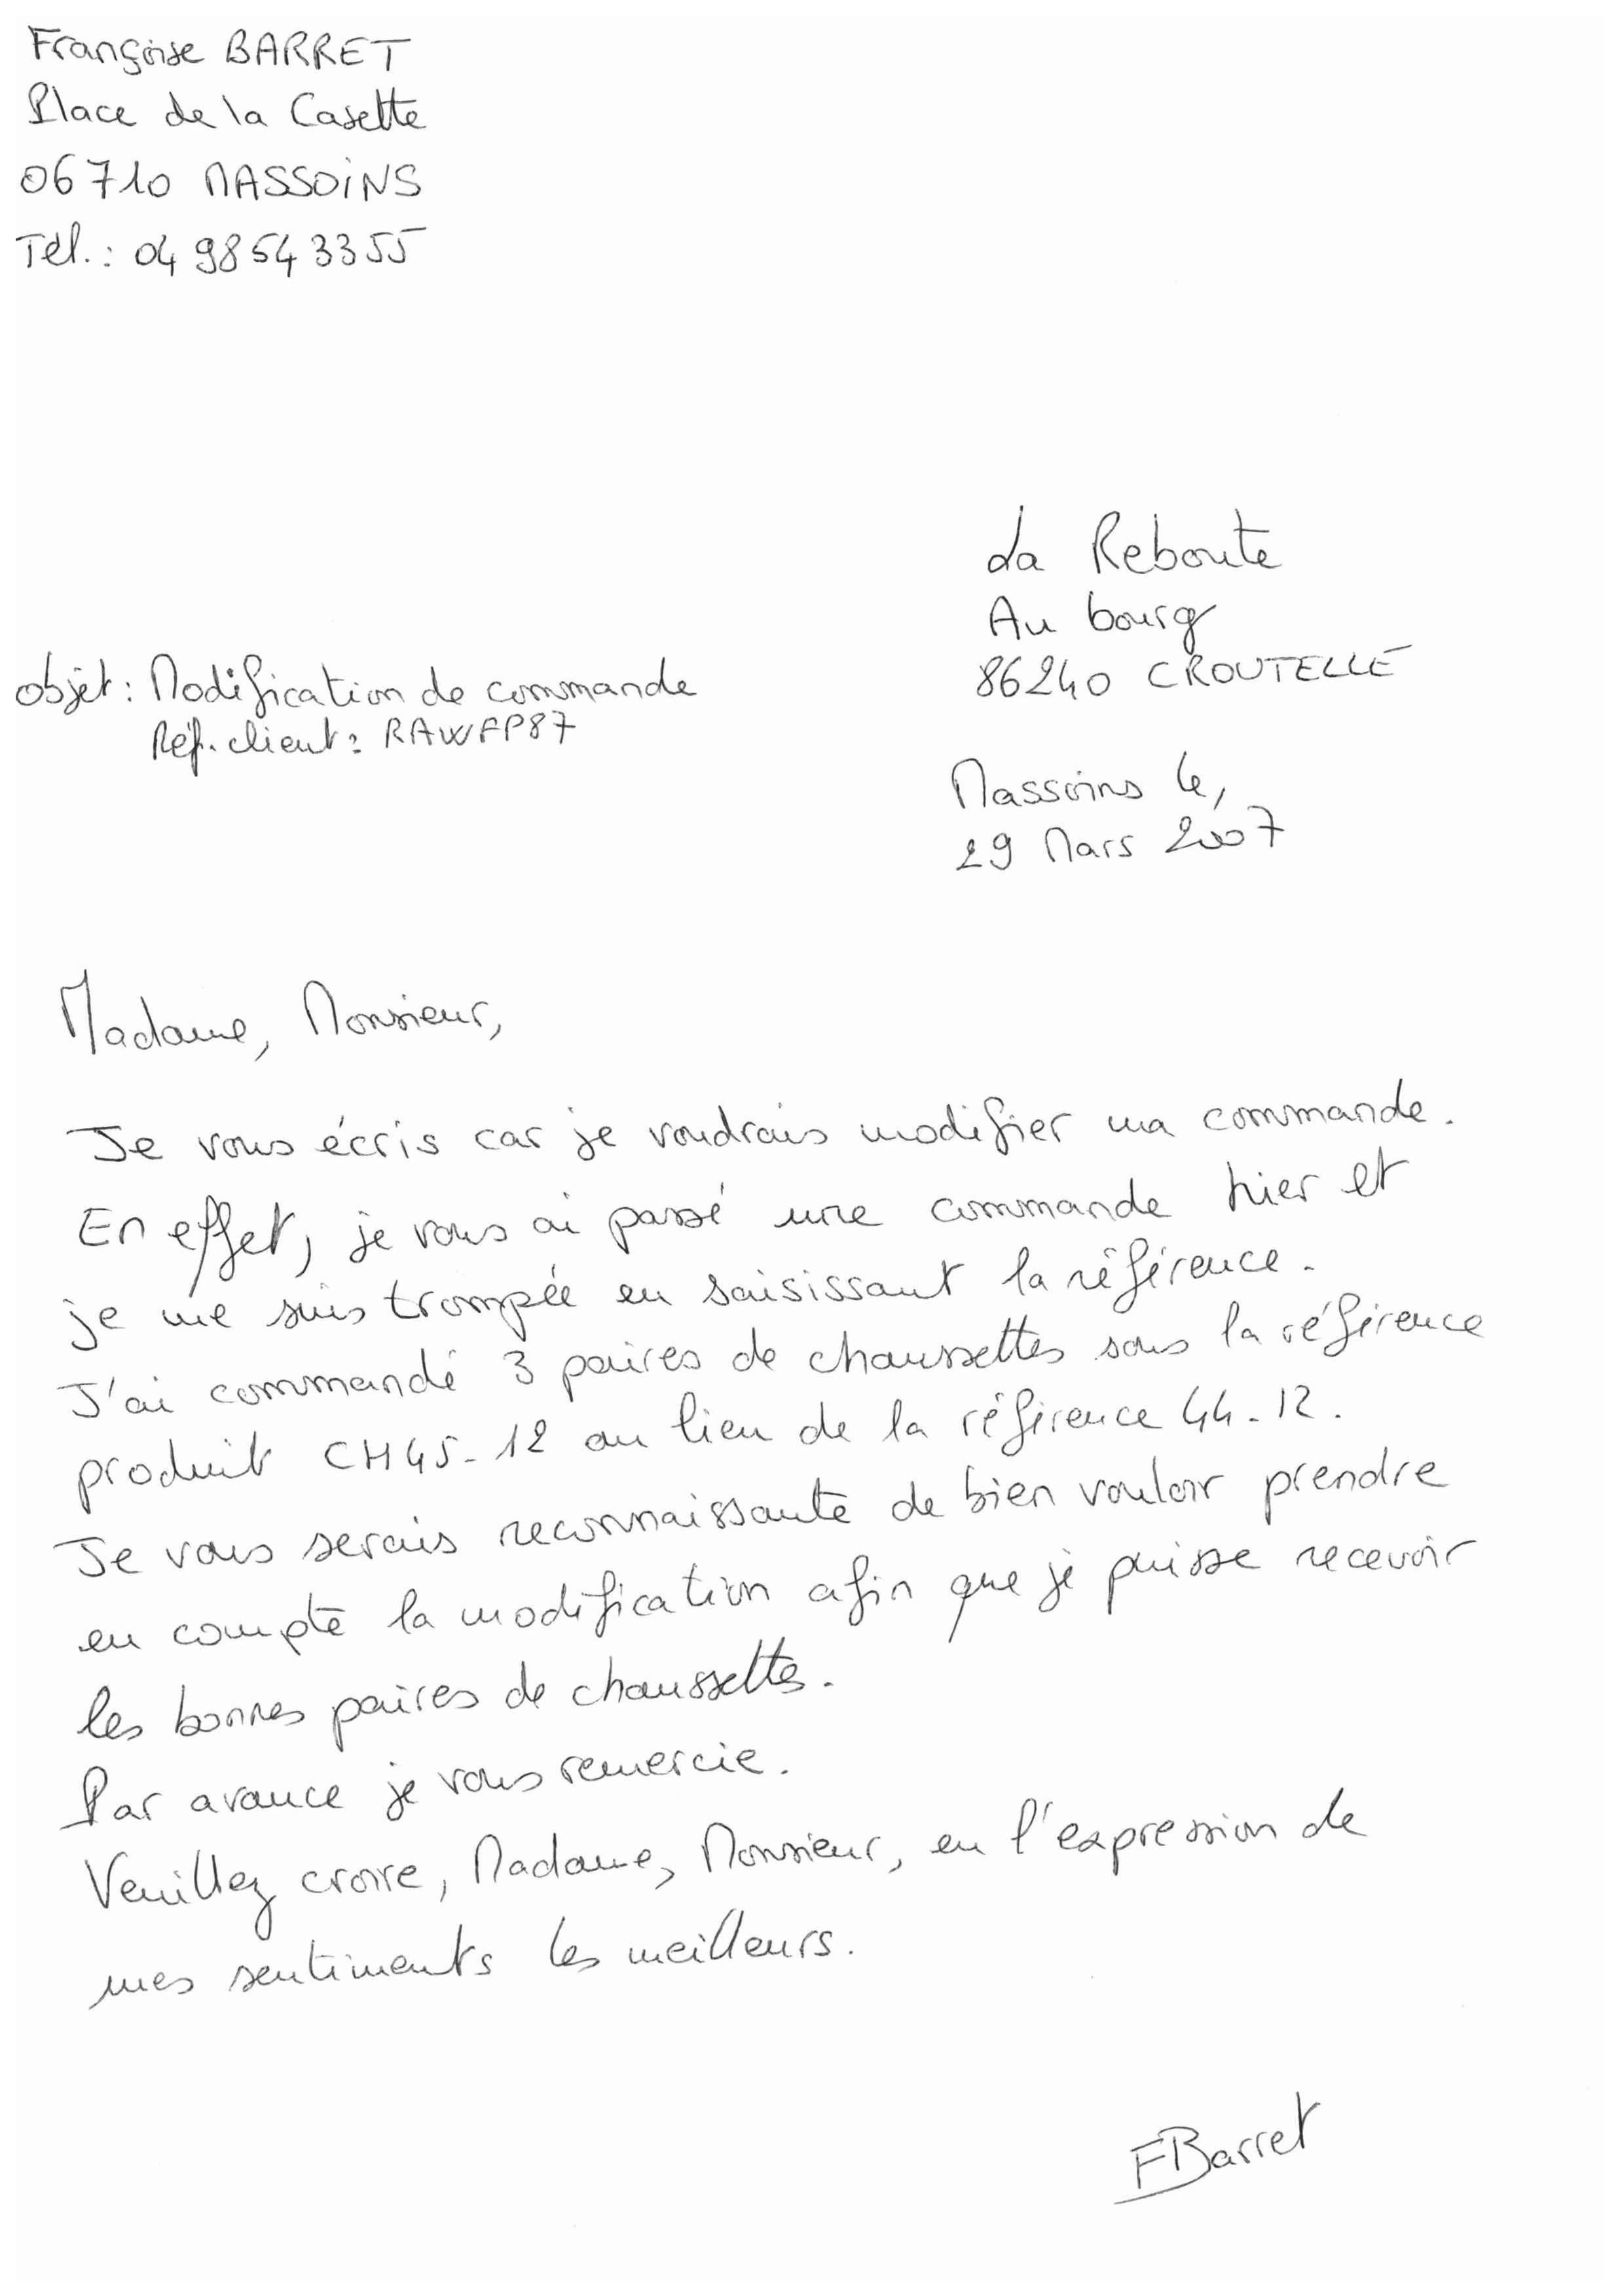 Françoise BARRET
Place de la Casette
06710 MASSOINS
Tél.: 04 98 54 33 55
La Reboute
Au bourg
86240 CROUTELLE
objet: Modification de commande
Réf. client: RAWFP87
Massoins le,
29 Mars 2007
Madame, Monsieur,
Je vous écris car je voudrais modifier ma commande.
En effet, je vous ai passé une commande hier et
je me suis trompée en saisissant la référence.
J'ai commandé 3 paires de chaussettes sous la référence
produit CH45-12 au lieu de la référence 44-12.
Je vous serais reconnaissante de bien vouloir prendre
en compte la modification afin que je puisse recevoir
les bonnes paires de chaussettes.
Par avance je vous remercie.
Veuillez croire, Madame, Monsieur, en l'expression de
mes sentiments les meilleurs.
FBarret